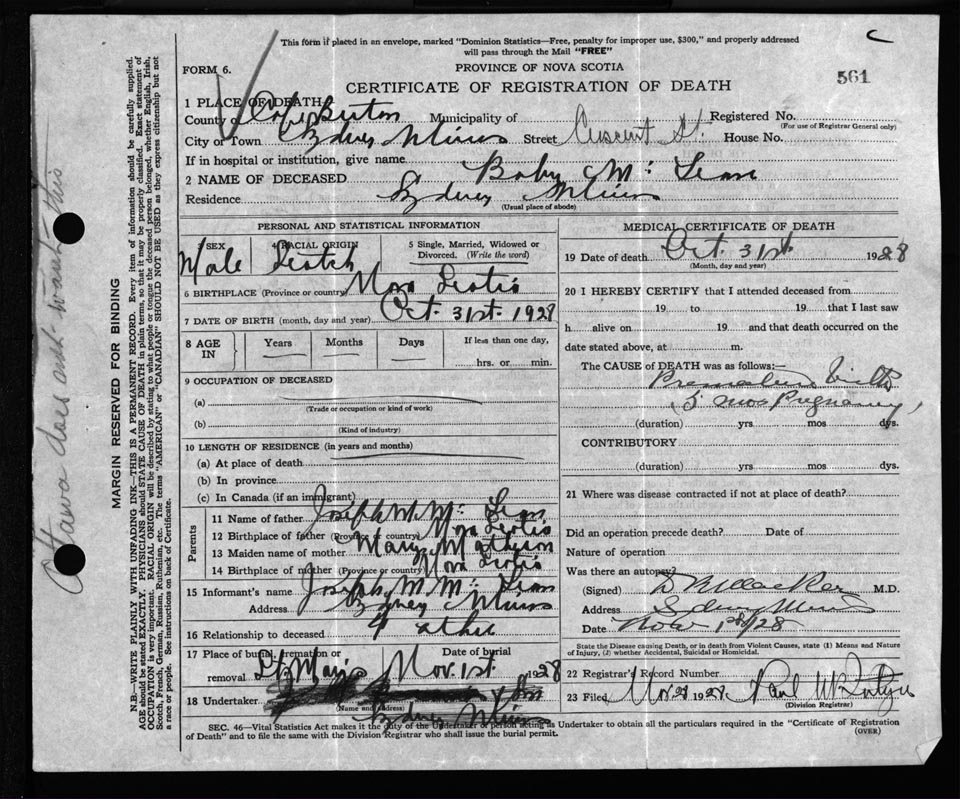 This form if placed in an envelope, marked "Dominion Statistics—Free, penalty for improper use, $300," and properly addressed
will pass through the Mail "FREE"
FORM 6.
PROVINCE OF NOVA SCOTIA
561
CERTIFICATE OF REGISTRATION OF DEATH
1 PLACE OF DEATH
County of Cape Breton Municipality of Registered No.
(For use of Registrar General only)
City or Town Sydney Mines Street Crescent St. House No.
If in hospital or institution, give name
2 NAME OF DECEASED. Baby Mc Lean
Residence Sydney Mines
(Usual place of abode)
PERSONAL AND STATISTICAL INFORMATION
3 SEX 4 RACIAL ORIGIN 5 Single, Married, Widowed or Divorced. (Write the word)
Male Scotch
6 BIRTHPLACE (Province or country) Nova Scotia
7 DATE OF BIRTH (month, day and year) Oct. 31st. 1928
8 AGE IN Years Months Days If less than one day,
hrs. or min.
9 OCCUPATION OF DECEASED
(a)
(Trade or occupation or kind of work)
(b)
(Kind of industry)
10 LENGTH OF RESIDENCE (in years and months)
(a) At place of death
(b) In province
(c) In Canada (if an immigrant)
Parents
11 Name of father Joseph W. Mc Lean
12 Birthplace of father (Province or country) Nova Scotia
13 Maiden name of mother Mary Matheson
14 Birthplace of mother (Province or country) Nova Scotia
15 Informant's name Joseph W. Mc Lean
Address Sydney Mines
16 Relationship to deceased Father
17 Place of burial, cremation or removal Date of burial
Nov. 1st 1928
18 Undertaker
(Name and address)
Sydney Mines
MEDICAL CERTIFICATE OF DEATH
19 Date of death Oct 31st 1928
(Month, day and year)
20 I HEREBY CERTIFY that I attended deceased from
19 to 19 that I last saw
h alive on 19 and that death occurred on the
date stated above, at m.
The CAUSE of DEATH was as follows:—
Premature birth
5 mos Pregnancy
(duration) yrs. mos dys.
CONTRIBUTORY
(duration) yrs. mos. dys.
21 Where was disease contracted if not at place of death?
Did an operation precede death? Date of
Nature of operation
Was there an autopsy?
(Signed) M.D.
Address Sydney Mines
Date Nov 1st/28
State the Disease causing Death, or in death from Violent Causes, state (1) Means and Nature
of Injury, (2) whether Accidental, Suicidal or Homicidal.
22 Registrar's Record Number
23 Filed Nov 2 1928
(Division Registrar)
SEC. 46—Vital Statistics Act makes it the duty of the Undertaker or person acting as Undertaker to obtain all the particulars required in the "Certificate of Registration
of Death" and to file the same with the Division Registrar who shall issue the burial permit.
(OVER)
MARGIN RESERVED FOR BINDING
N.B.—WRITE PLAINLY WITH UNFADING INK—THIS IS A PERMANENT RECORD. Every item of information should be carefully supplied.
AGE should be stated EXACTLY. PHYSICIANS should STATE CAUSE OF DEATH in plain terms, so that it may be properly classified. Exact statement of
OCCUPATION is very important. RACIAL ORIGIN will be described by stating to what people or tongue the deceased person belonged, whether English, Irish,
Scotch, French, German, Russian, Ruthenian, etc. The terms "AMERICAN" or "CANADIAN" SHOULD NOT BE USED as they express citizenship but not
a race or people. See instructions on back of Certificate.
Ottawa does not want this